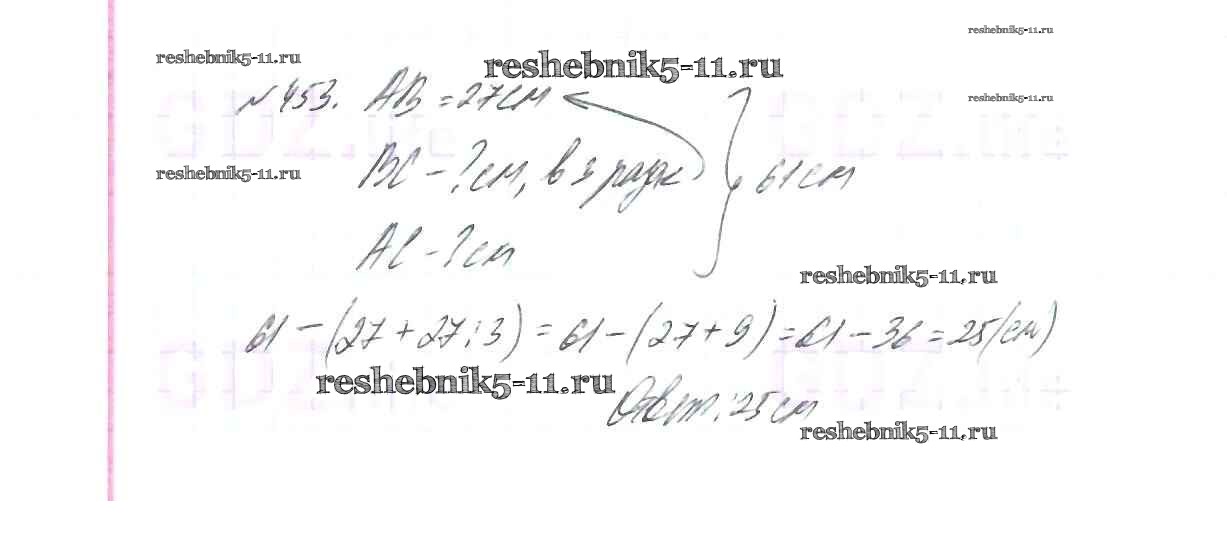 reshebnik5-11.ru
reshebnik5-11.ru
reshebnik5-11.ru
№ 453. AB = 27 см
reshebnik5-11.ru
BC - ? см, в 3 р
reshebnik5-11.ru
61 см
AC - ? см
reshebnik5-11.ru
61 - (27 + 27 : 3) = 61 - (27 + 9) = 61 - 36 = 25 (см)
reshebnik5-11.ru
Ответ: 25 см
reshebnik5-11.ru